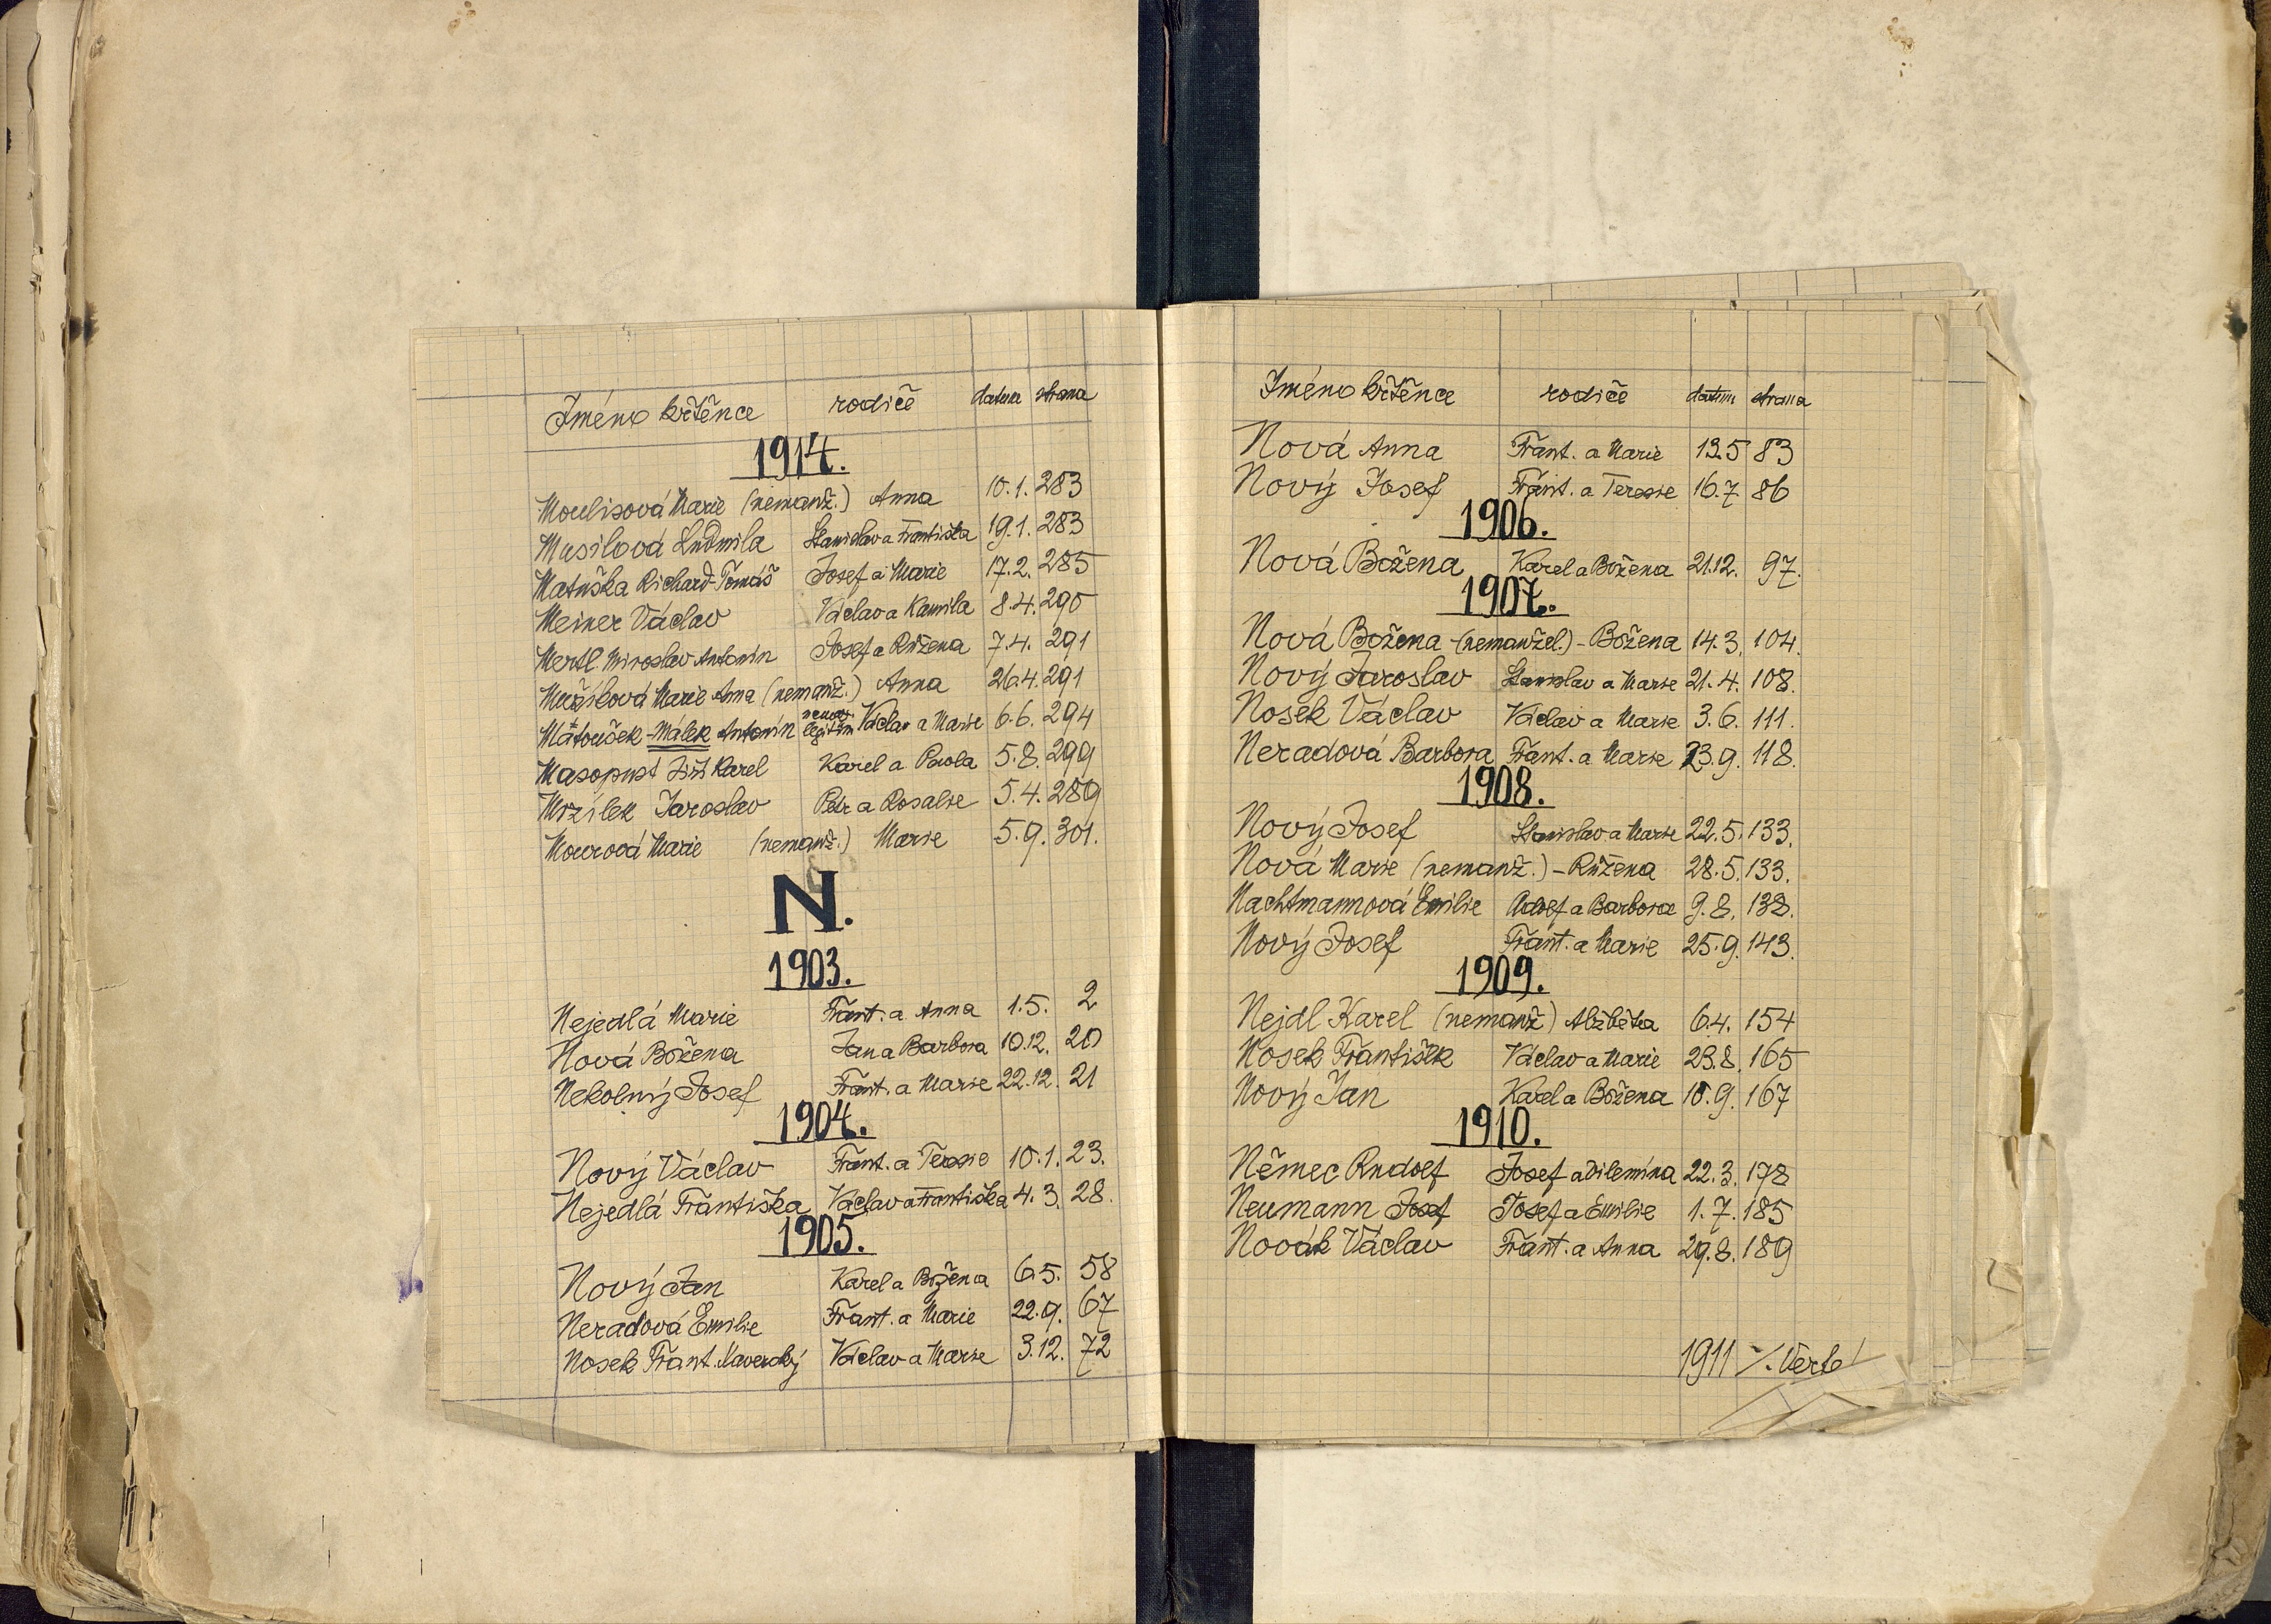 Jméno křtěnce rodiče datum strana
1914.
Moulisová Marie (nemanž.) Anna 10.1. 283
Musilová Ludmila Stanislav a Františka 19.1. 283
Matuška Richard-Tomáš Josef a Marie 17.2. 285
Meiner Václav Václav a Kamila 8.4. 290
Mertl Miroslav Antonín Josef a Růžena 7.4. 291
Mužíková Marie Anna (nemanž.) Anna 26.4. 291
Matoušek-Málek Antonín legitim Václav a Marie 6.6. 294
Masopust Jiří Karel Karel a Paola 5.8. 299
Mrzílek Jaroslav Petr a Rosalie 5.4. 289
Mourová Marie (nemanž.) Marie 5.9. 301.
N.
1903.
Nejedlá Marie Frant. a Anna 1.5. 2
Nová Božena Jan a Barbora 10.12. 20
Nekolný Josef Frant. a Marie 22.12. 21
1904.
Nový Václav Frant. a Teresie 10.1. 23.
Nejedlá Františka Václav a Františka 4.3. 28.
1905.
Nový Jan Karel a Božena 6.5. 58
Neradová Emilie Frant. a Marie 22.9. 67
Nosek Frant. Xaverský Václav a Marie 3.12. 72
Jméno křtěnce rodiče datum strana
Nová Anna Frant. a Marie 13.5 83
Nový Josef Frant. a Teresie 16.7 86
1906.
Nová Božena Karel a Božena 21.12. 97.
1907.
Nová Božena (nemanžel.) - Božena 14.3. 104.
Nový Jaroslav Stanislav a Marie 21.4. 108.
Nosek Václav Václav a Marie 3.6. 111.
Neradová Barbora Frant. a Marie 23.9. 118.
1908.
Nový Josef Stanislav a Marie 22.5. 133.
Nová Marie (nemanž.) - Růžena 28.5. 133.
Nachtmannová Emilie Adolf a Barbora 9.8. 138.
Nový Josef Frant. a Marie 25.9. 143.
1909.
Nejdl Karel (nemanž) Alžběta 6.4. 154
Nosek František Václav a Marie 23.8. 165
Nový Jan Karel a Božena 10.9. 167
1910.
Němec Rudolf Josef a Vilemína 22.3. 178
Neumann Josef Josef a Emilie 1.7. 185
Novák Václav Frant. a Anna 29.8. 189
1911 ./. Verte!